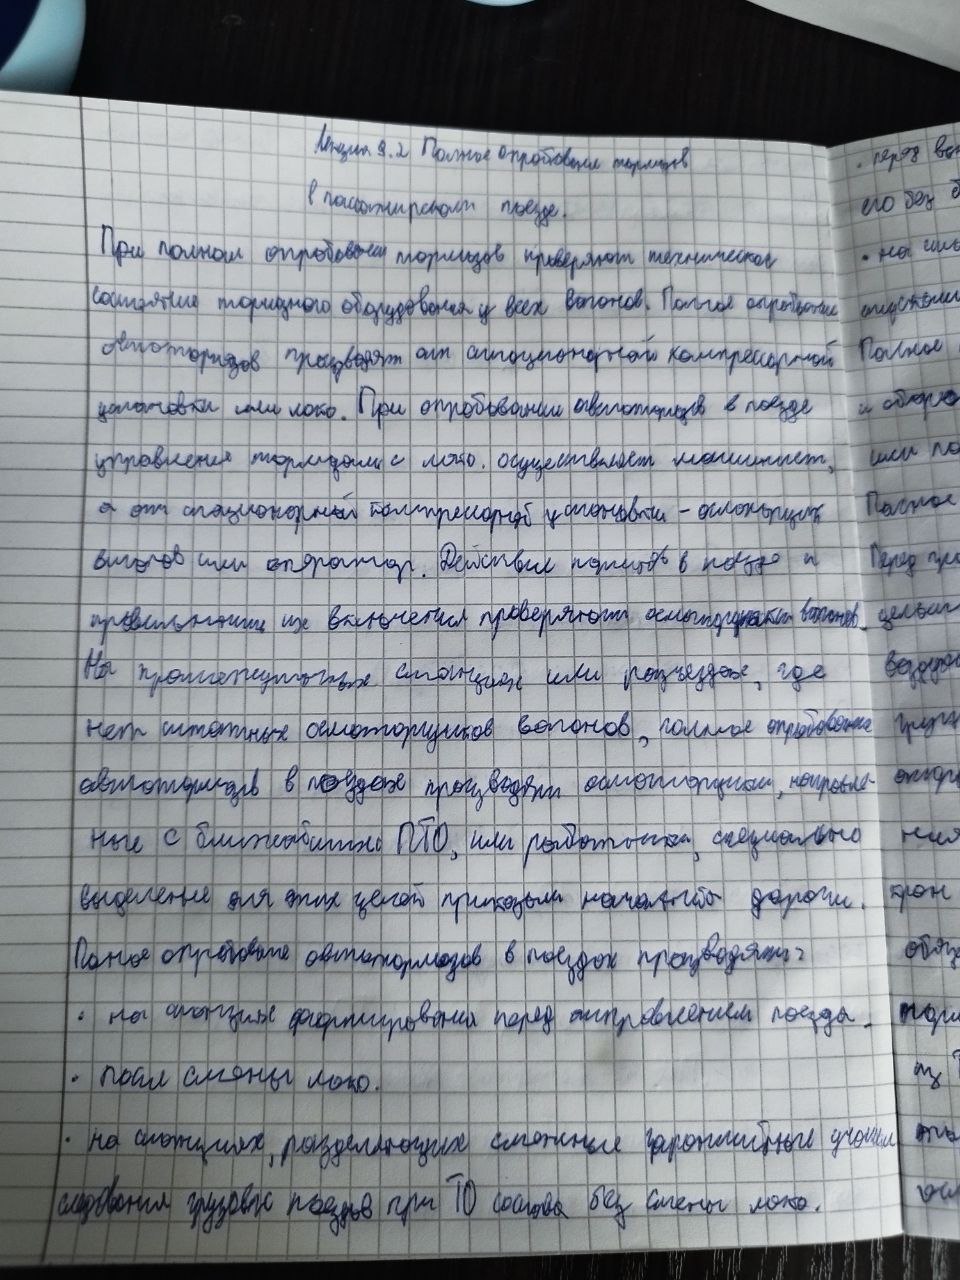 Лекция 9.2 Полное опробование тормозов
в пассажирском поезде.
При полном опробовании тормозов проверяют техническое
состояние тормозного оборудования у всех вагонов. Полное опробование
автотормозов производят от стационарной компрессорной
установки или локо. При опробовании автотормозов в поезде
управление тормозами с локо. осуществляет машинист,
а от стационарной компрессорной установки - осмотрщик
вагонов или оператор. Действия тормозов в поезде и
правильность их включения проверяют осмотрщики вагонов.
На промежуточных станциях или разъездах, где
нет штатных осмотрщиков вагонов, полное опробование
автотормозов в поездах производят осмотрщики, направле-
ные с ближайших ПТО, или работники, специально
выделеные для этих целей приказом начальника дороги.
Полное опробование автотормозов в поездах производят:
• на станциях формирования перед отправлением поезда.
• посл смены локо.
• на станциях, разделяющих смежные гарантийные участки
следования грузовых поездов при ТО состава без смены локо.
• перед
его без
• на
Полное
или
Полное
Перед
кран